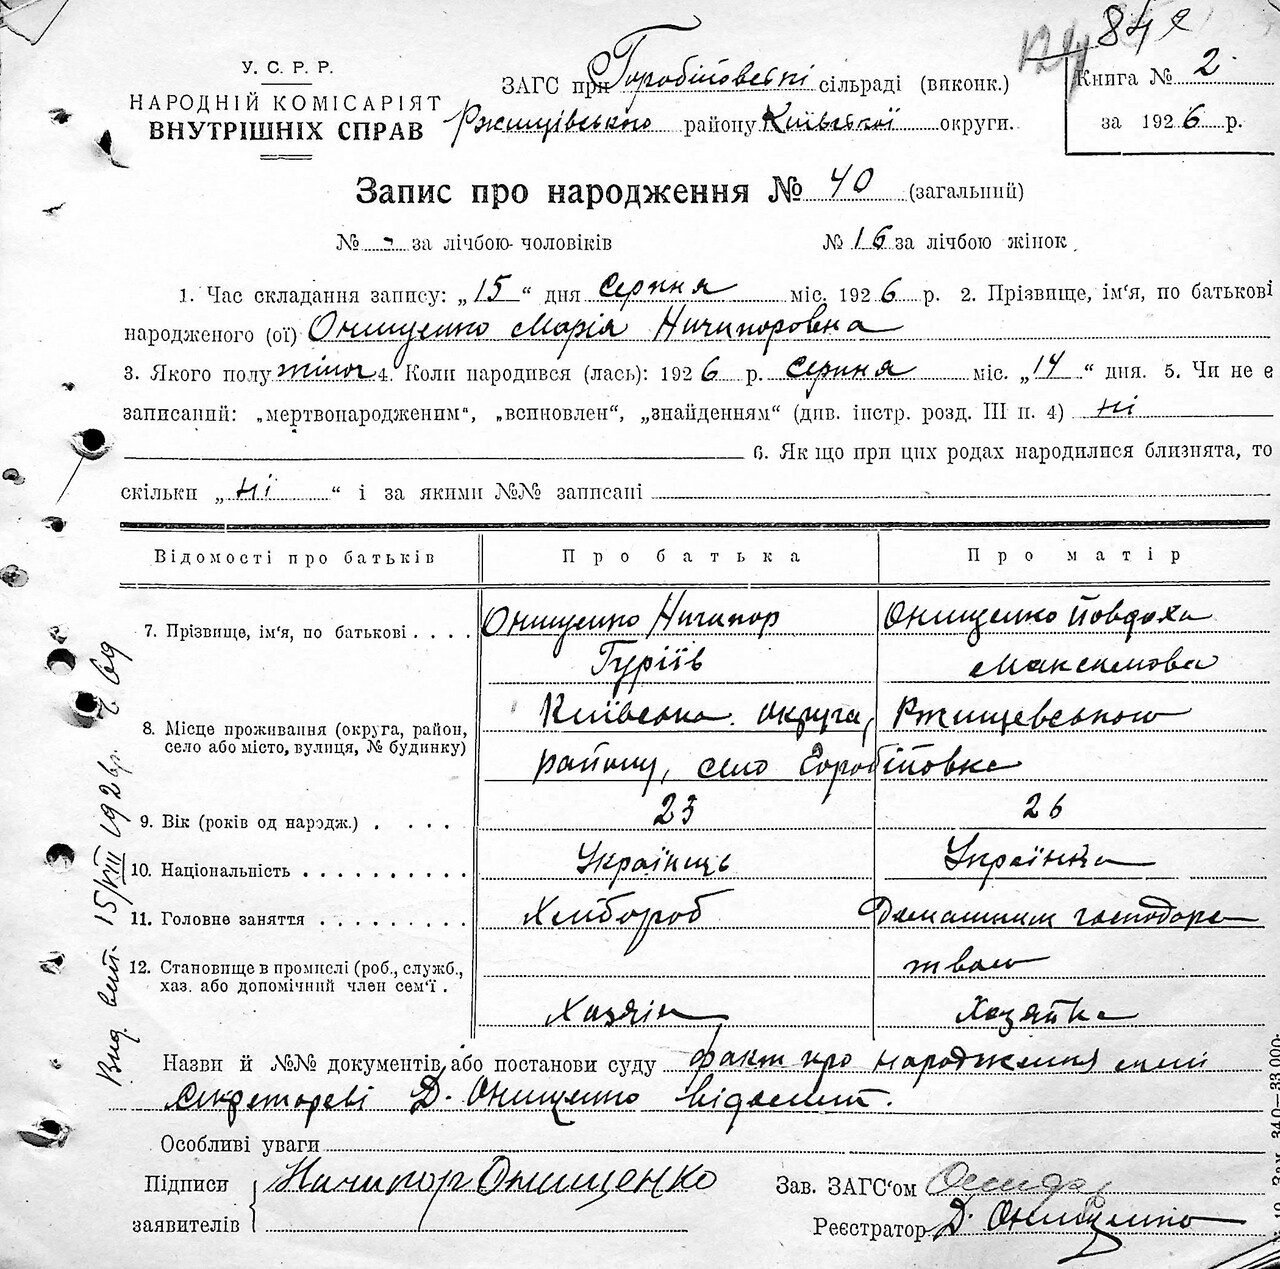 84 2
У. С. Р. Р.
НАРОДНІЙ КОМІСАРІЯТ
ВНУТРІШНІХ СПРАВ
ЗАГС при Горобіївські сільраді (виконк.)
Ржищівського району Київської округи.
Книга № 2
за 1926 р.
Запис про народження № 40 (загальний)
№ - за лічбою чоловіків № 16 за лічбою жінок
1. Час складання запису: „15“ дня серпня міс. 1926 р. 2. Прізвище, ім‘я, по батькові
народженого (ої) Онищенко Марія Ничипоровна
3. Якого полу жіноч 4. Коли народився (лась): 1926 р. серпня міс. „14“ дня. 5. Чи не є
записаний: „мертвонародженим“, „всиновлен“, „знайденням“ (див. інстр. розд. III п. 4) ні
6. Як що при цих родах народилися близнята, то
скільки „ні“ і за якими №№ записані
Відомості про батьків Про батька Про матір
7. Прізвище, ім‘я, по батькові . . . . Онищенко Ничипор Онищенко Йовдоха
Гуріїв Максимова
8. Місце проживання (округа, район, село або місто, вулиця, № будинку) Київська округа, Ржищевського
району, село Горобіївка
9. Вік (років од народж.) . . . . 23 26
10. Національність . . . . . . . . . . Українець Українка
11. Головне заняття . . . . . . . . Хлібороб Домашним господарс
твом
12. Становище в промислі (роб., служб., хаз. або допомічний член сем‘ї . Хазяїн Хазяйка
Назви й №№ документів або постанови суду факт про народження мені
секретареві Д. Онищенко відомий.
Особливі уваги
Підписи заявителів Ничипор Онищенко
Зав. ЗАГС‘ом
Реєстратор Д. Онищенко
Вид. вит. 15/VIII 1926р.